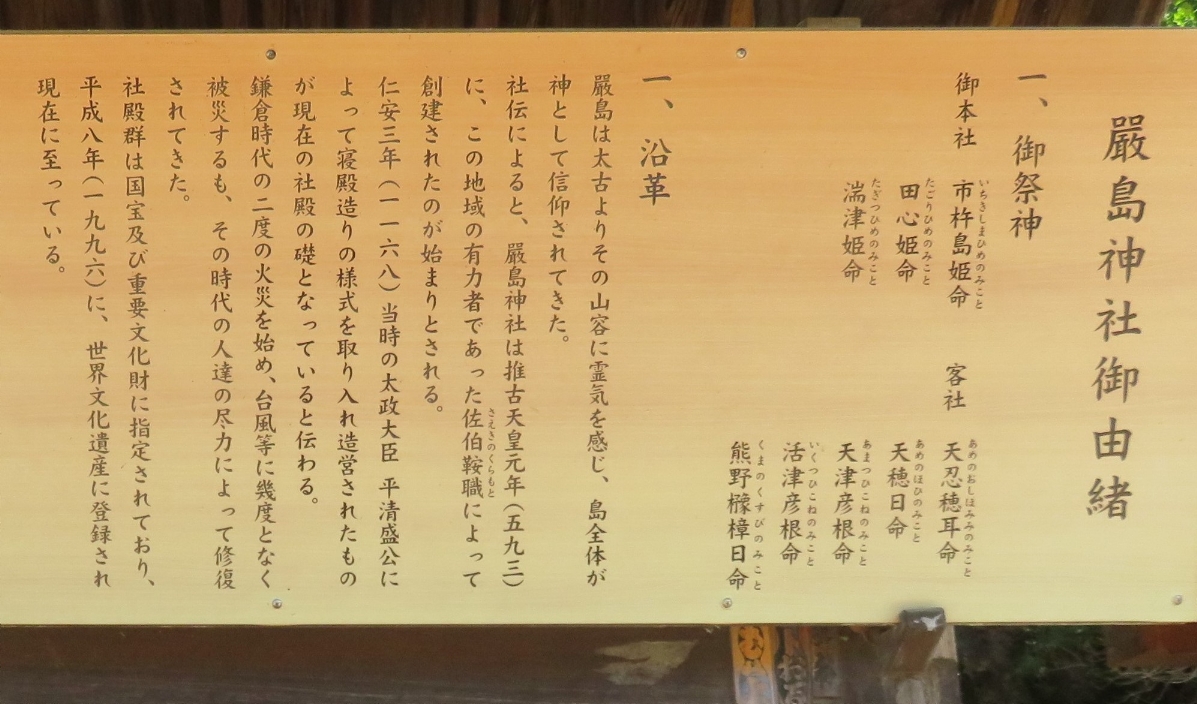 嚴島神社御由緒
一、御祭神
御本社 市杵島姫命 客社 天忍穂耳命
いちきしまひめのみこと あめのおしほみみのみこと
田心姫命 天穂日命
たごりひめのみこと あめのほひのみこと
湍津姫命 天津彦根命
たぎつひめのみこと あまつひこねのみこと
活津彦根命
いくつひこねのみこと
熊野櫲樟日命
くまのくすびのみこと
一、沿革
嚴島は太古よりその山容に霊気を感じ、島全体が
神として信仰されてきた。
社伝によると、嚴島神社は推古天皇元年(五九三)
に、この地域の有力者であった佐伯鞍職によって
さえきのくらもと
創建されたのが始まりとされる。
仁安三年(一一六八)当時の太政大臣 平清盛公に
よって寝殿造りの様式を取り入れ造営されたもの
が現在の社殿の礎となっていると伝わる。
鎌倉時代の二度の火災を始め、台風等に幾度となく
被災するも、その時代の人達の尽力によって修復
されてきた。
社殿群は国宝及び重要文化財に指定されており、
平成八年(一九九六)に、世界文化遺産に登録され
現在に至っている。